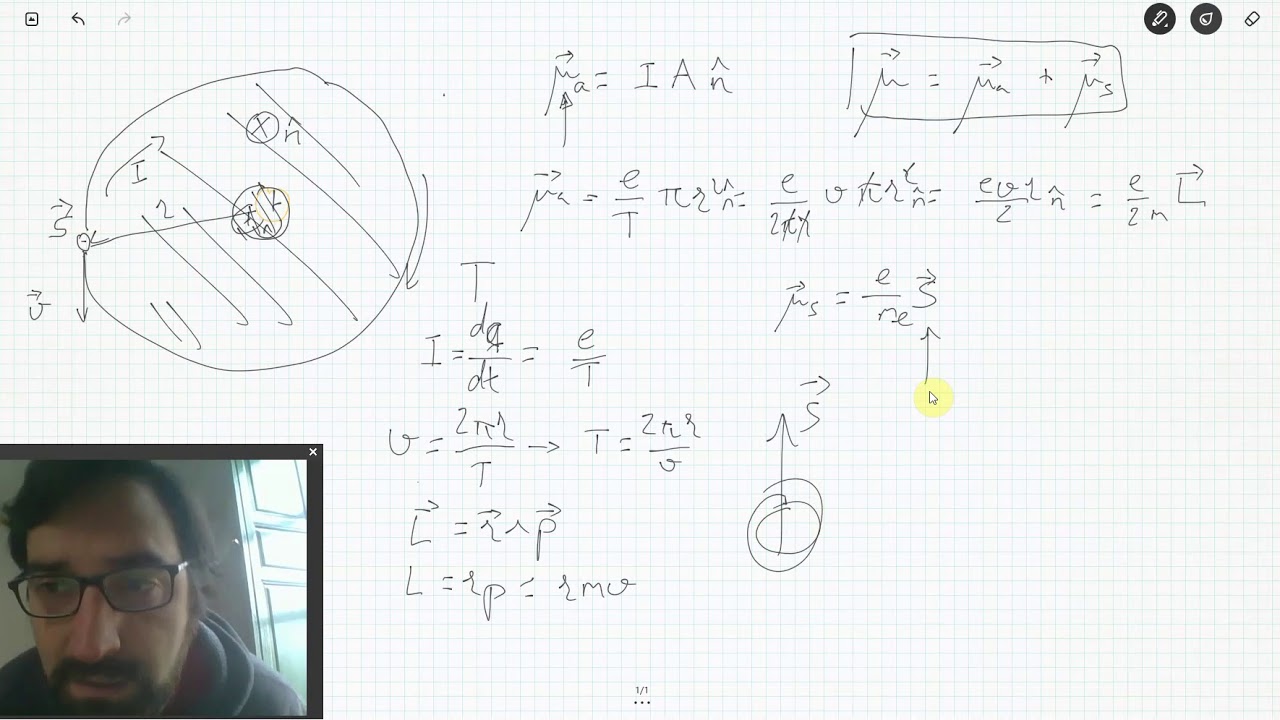 μ⃗ₐ = I A n̂
μ⃗ = μ⃗ₐ + μ⃗ₛ
n̂
I
r
S⃗
v⃗
μ⃗ₐ = e/T πr² n̂ = e/2πr v πr² n̂ = evr/2 n̂ = e/2m L⃗
T
μ⃗ₛ = e/mₑ S⃗
I = dq/dt = e/T
S⃗
v = 2πr/T → T = 2πr/v
L⃗ = r⃗ ∧ p⃗
L = rp = rmv
1/1